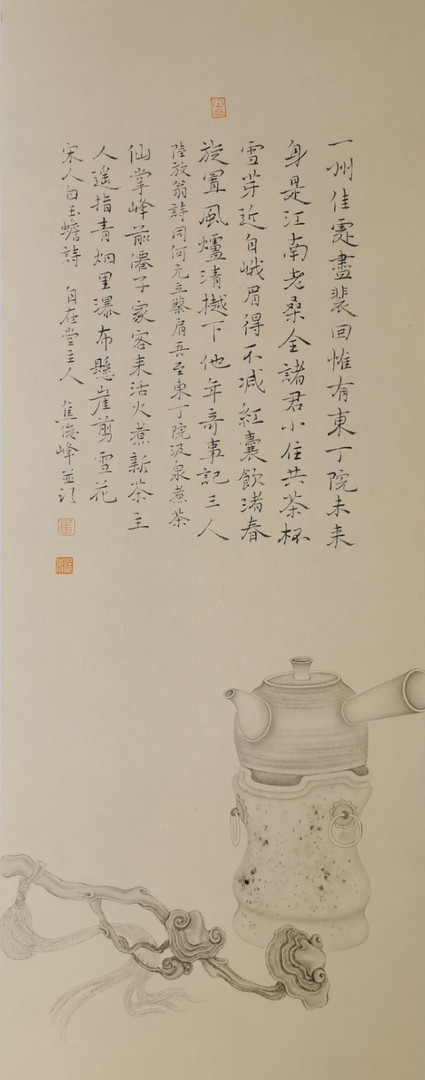 一州佳處盡裴回惟有東丁院未来
身是江南老桑苎諸君小住共茶杯
雪芽近自峨眉得不減紅囊顾渚春
旋置風爐清樾下他年奇事記三人
陸放翁詩同何元立蔡肩吾至東丁院汲泉煮茶
仙掌峰前僊子家客来活火煮新茶主
人遥指青烟里瀑布懸崖剪雪花
宋人白玉蟾詩 自在堂主人 焦俊峰並识